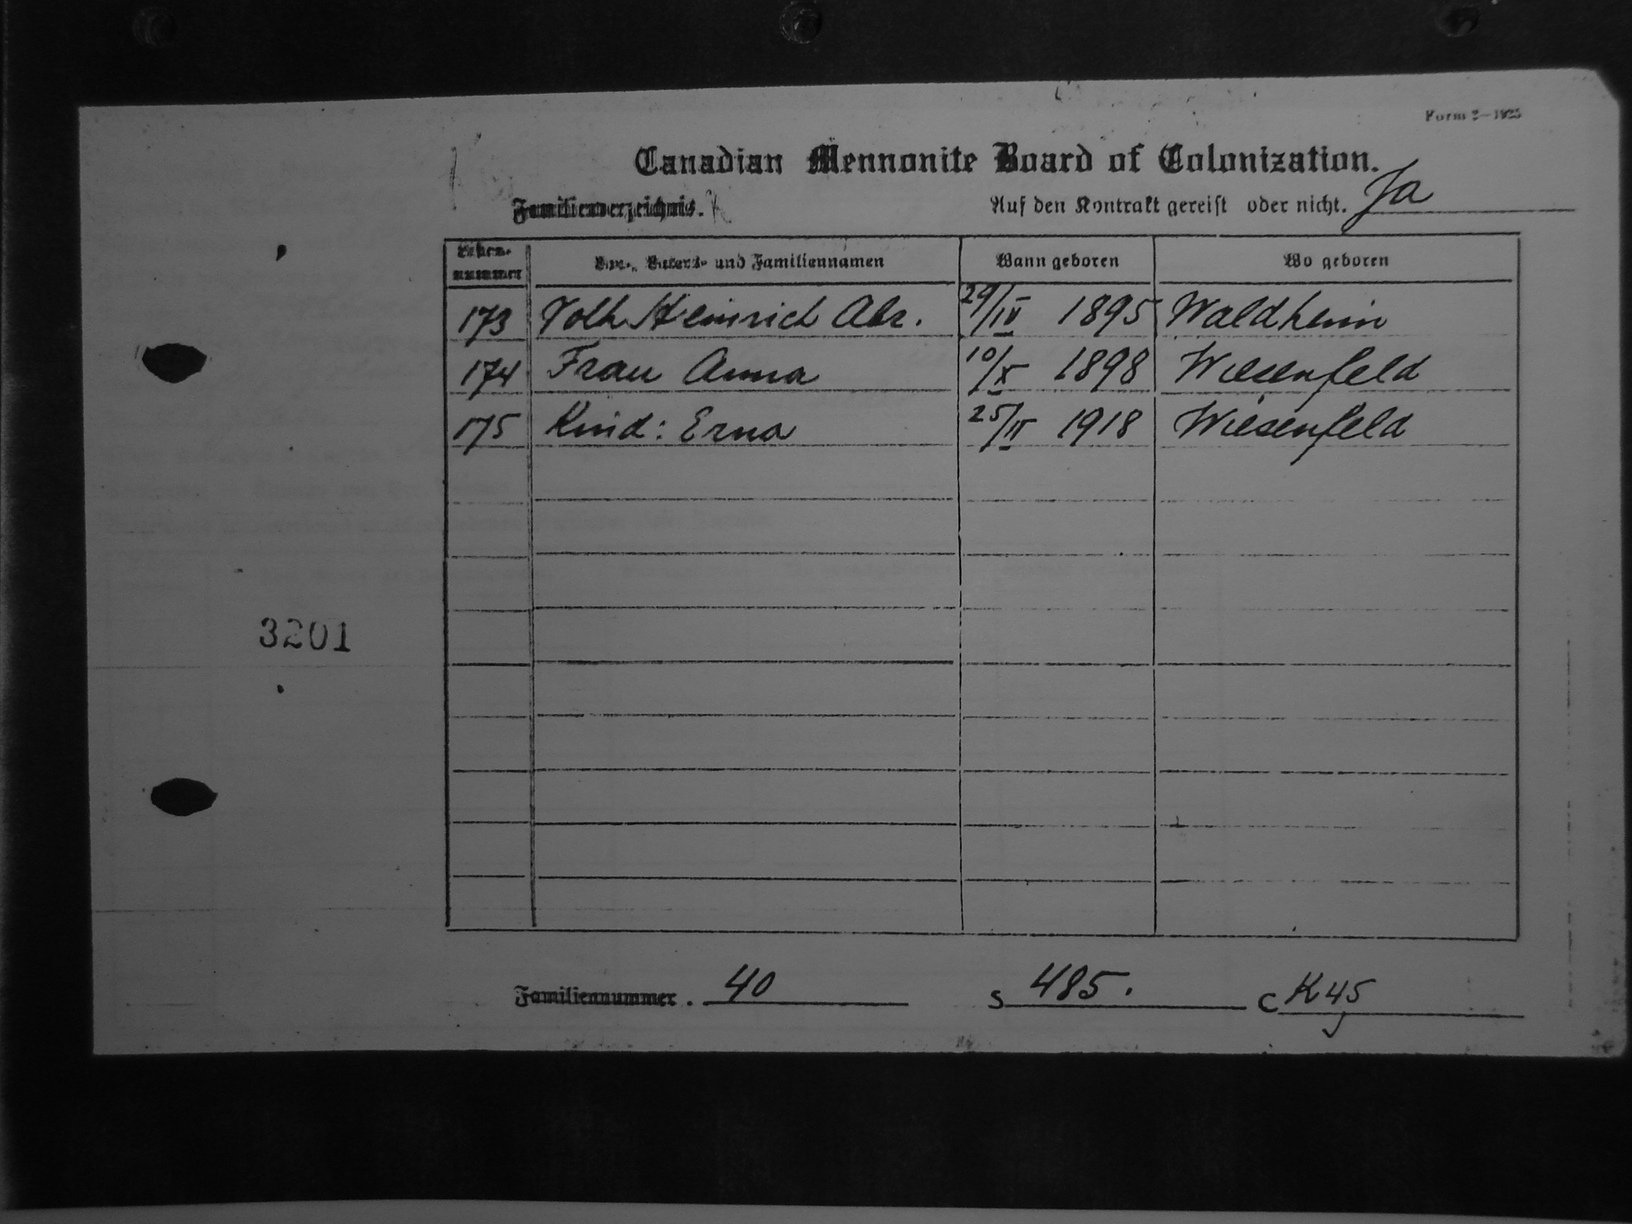 Form 2—1925
Canadian Mennonite Board of Colonization.
Familienverzeichnis. Auf den Kontrakt gereist oder nicht. Ja
nummer Vor-, Vaters- und Familiennamen Wann geboren Wo geboren
173 Voth Heinrich Abr. 29/IV 1895 Waldheim
174 Frau Anna 10/X 1898 Wiesenfeld
175 Kind: Erna 25/II 1918 Wiesenfeld
3201
Familiennummer. 40 S 485. C K 45